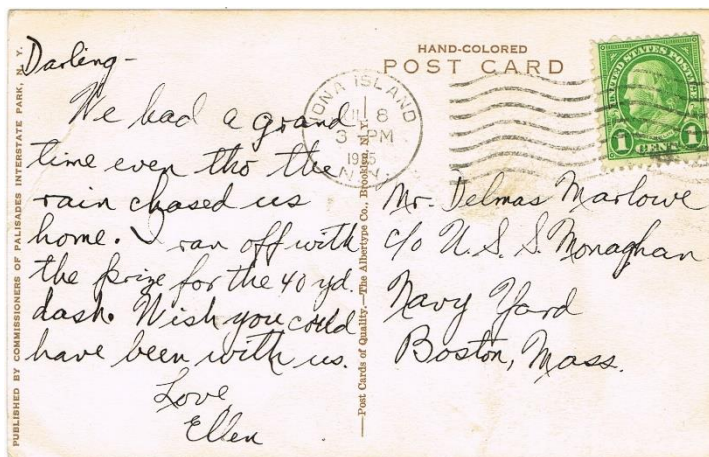 PUBLISHED BY COMMISSIONERS OF PALISADES INTERSTATE PARK, N. Y.
Darling-
We had a grand
time even tho the
rain chased us
home. I ran off with
the prize for the 40 yd.
dash. Wish you could
have been with us.
Love
Ellen
Post Cards of Quality.—The Albertype Co., Brooklyn, N. Y.
HAND-COLORED
POST CARD
IONA ISLAND
8
3 PM
N.Y.
UNITED STATES POSTAGE
1 CENT 1
Mr. Delmas Marlowe
c/o U.S.S. Monaghan
Navy Yard
Boston, Mass.